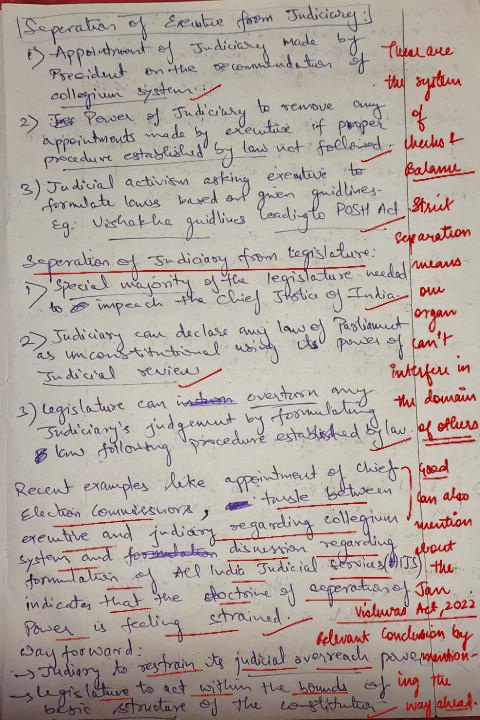 Seperation of Executive from Judiciary:
1) Appointment of Judiciary made by
President on the recommendation of
collegium system.
2) Power of Judiciary to remove any
appointments made by executive if proper
procedure established by law not followed.
3) Judicial activism asking executive to
formulate laws based on given guidlines.
Eg: Vishakha guidlines leading to POSH Act
There are
the system
of
checks &
Balance
Seperation of Judiciary from Legislature:
1) Special majority of the legislature needed
to impeach the Chief Justice of India.
2) Judiciary can declare any law of Parliament
as unconstitutional using its power of
Judicial review
3) Legislature can overturn any
Judiciary's judgement by formulating
law following procedure established by law.
Strict
separation
means
one
organ
can't
interfere in
the domain
of others
Recent examples like appointment of chief
Election Commissionors, tussle between
executive and judiciary regarding collegium
system and discussion regarding
formulation of All India Judicial Services (AIJS)
indicates that the doctrine of seperation of
Power is feeling strained.
Good
Can also
mention
about
the
Jan
Vishwas Act, 2022
Way forward:
→ Judiary to restrain its judicial overreach power
→ Legislature to act within the bounds of
basic structure of the constitution
Relevant Conclusion by
mention-
ing the
way ahead.